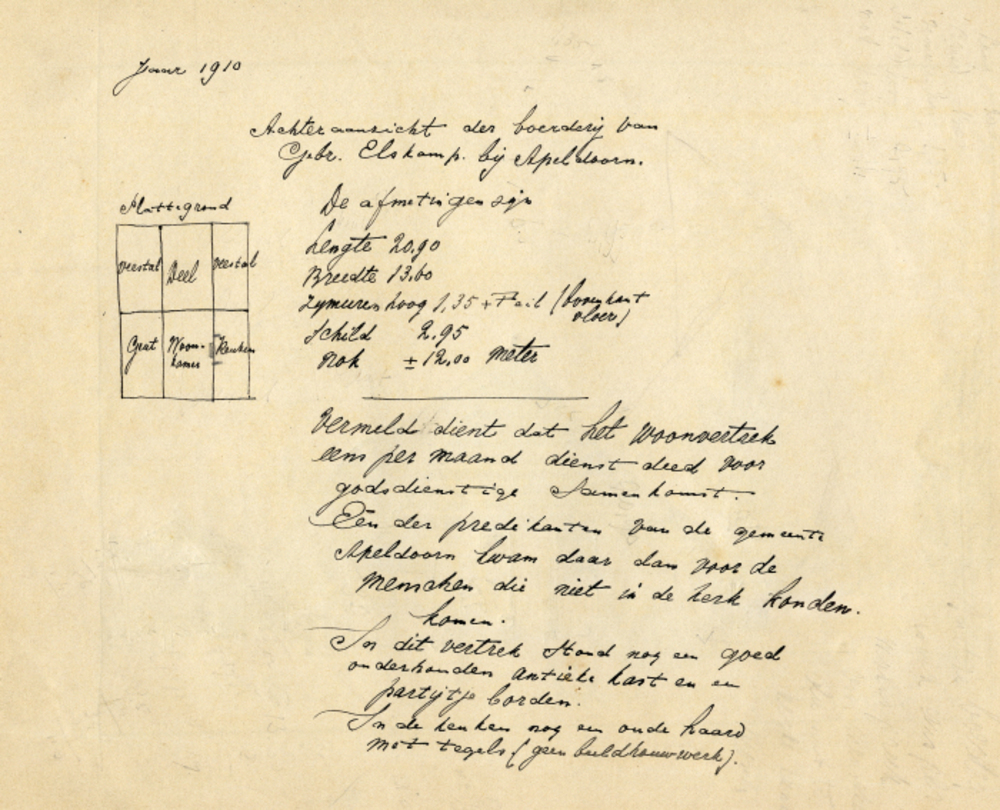 Jaar 1910
Achteraanzicht der boerderij van
Gebr. Elskamp. bij Apeldoorn.
Plattegrond
veestal Deel veestal
Woon-
kamer Keuken
De afmetingen zijn
Lengte 20.90
Breedte 13.60
Zymuren hoog 1,35 + (bovenkant
vloer)
Schild 2.95
Nok ± 12.00 meter
Vermeld dient dat het woonvertrek
eens per maand dienst deed voor
godsdienstige Samenkomst.
Eén der predikanten van de gemeente
Apeldoorn kwam daar dan voor de
menschen die niet in de kerk konden.
komen.
In dit vertrek stond nog een goed
onderhouden antieke kast en een
partijtje borden.
In de keuken nog een oude haard
met tegels (geen beeldhouwwerk).